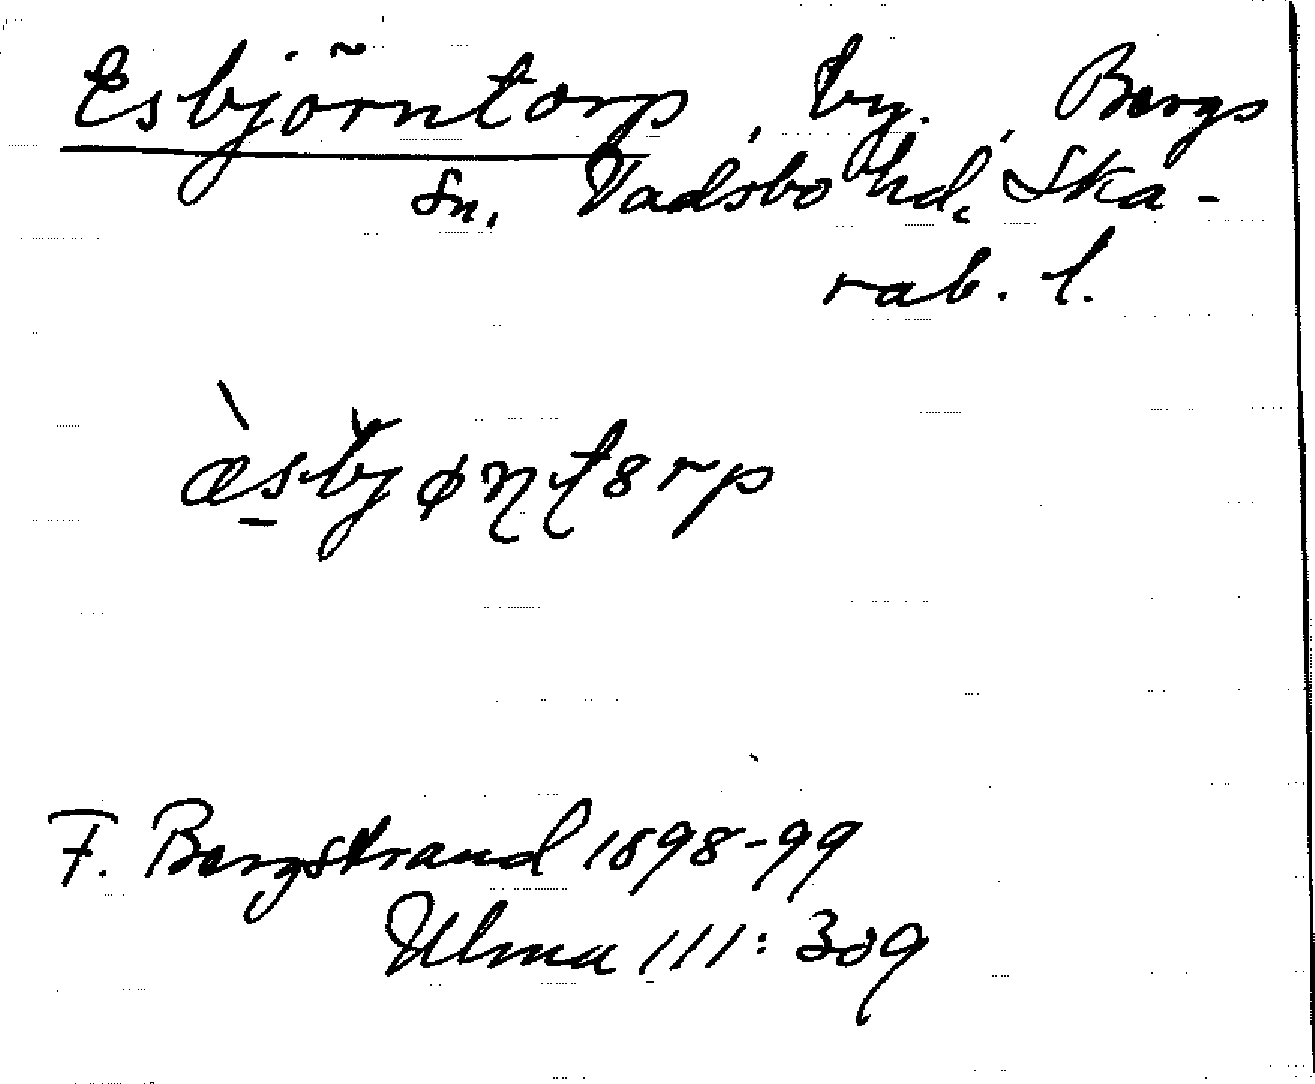 Esbjörntorp, by. Bergs
sn, Vadsbo hd, Ska-
rab. l.
æ̀sbjøɳʈ8rp
F. Bergstrand 1898-99
Ulma 111:309